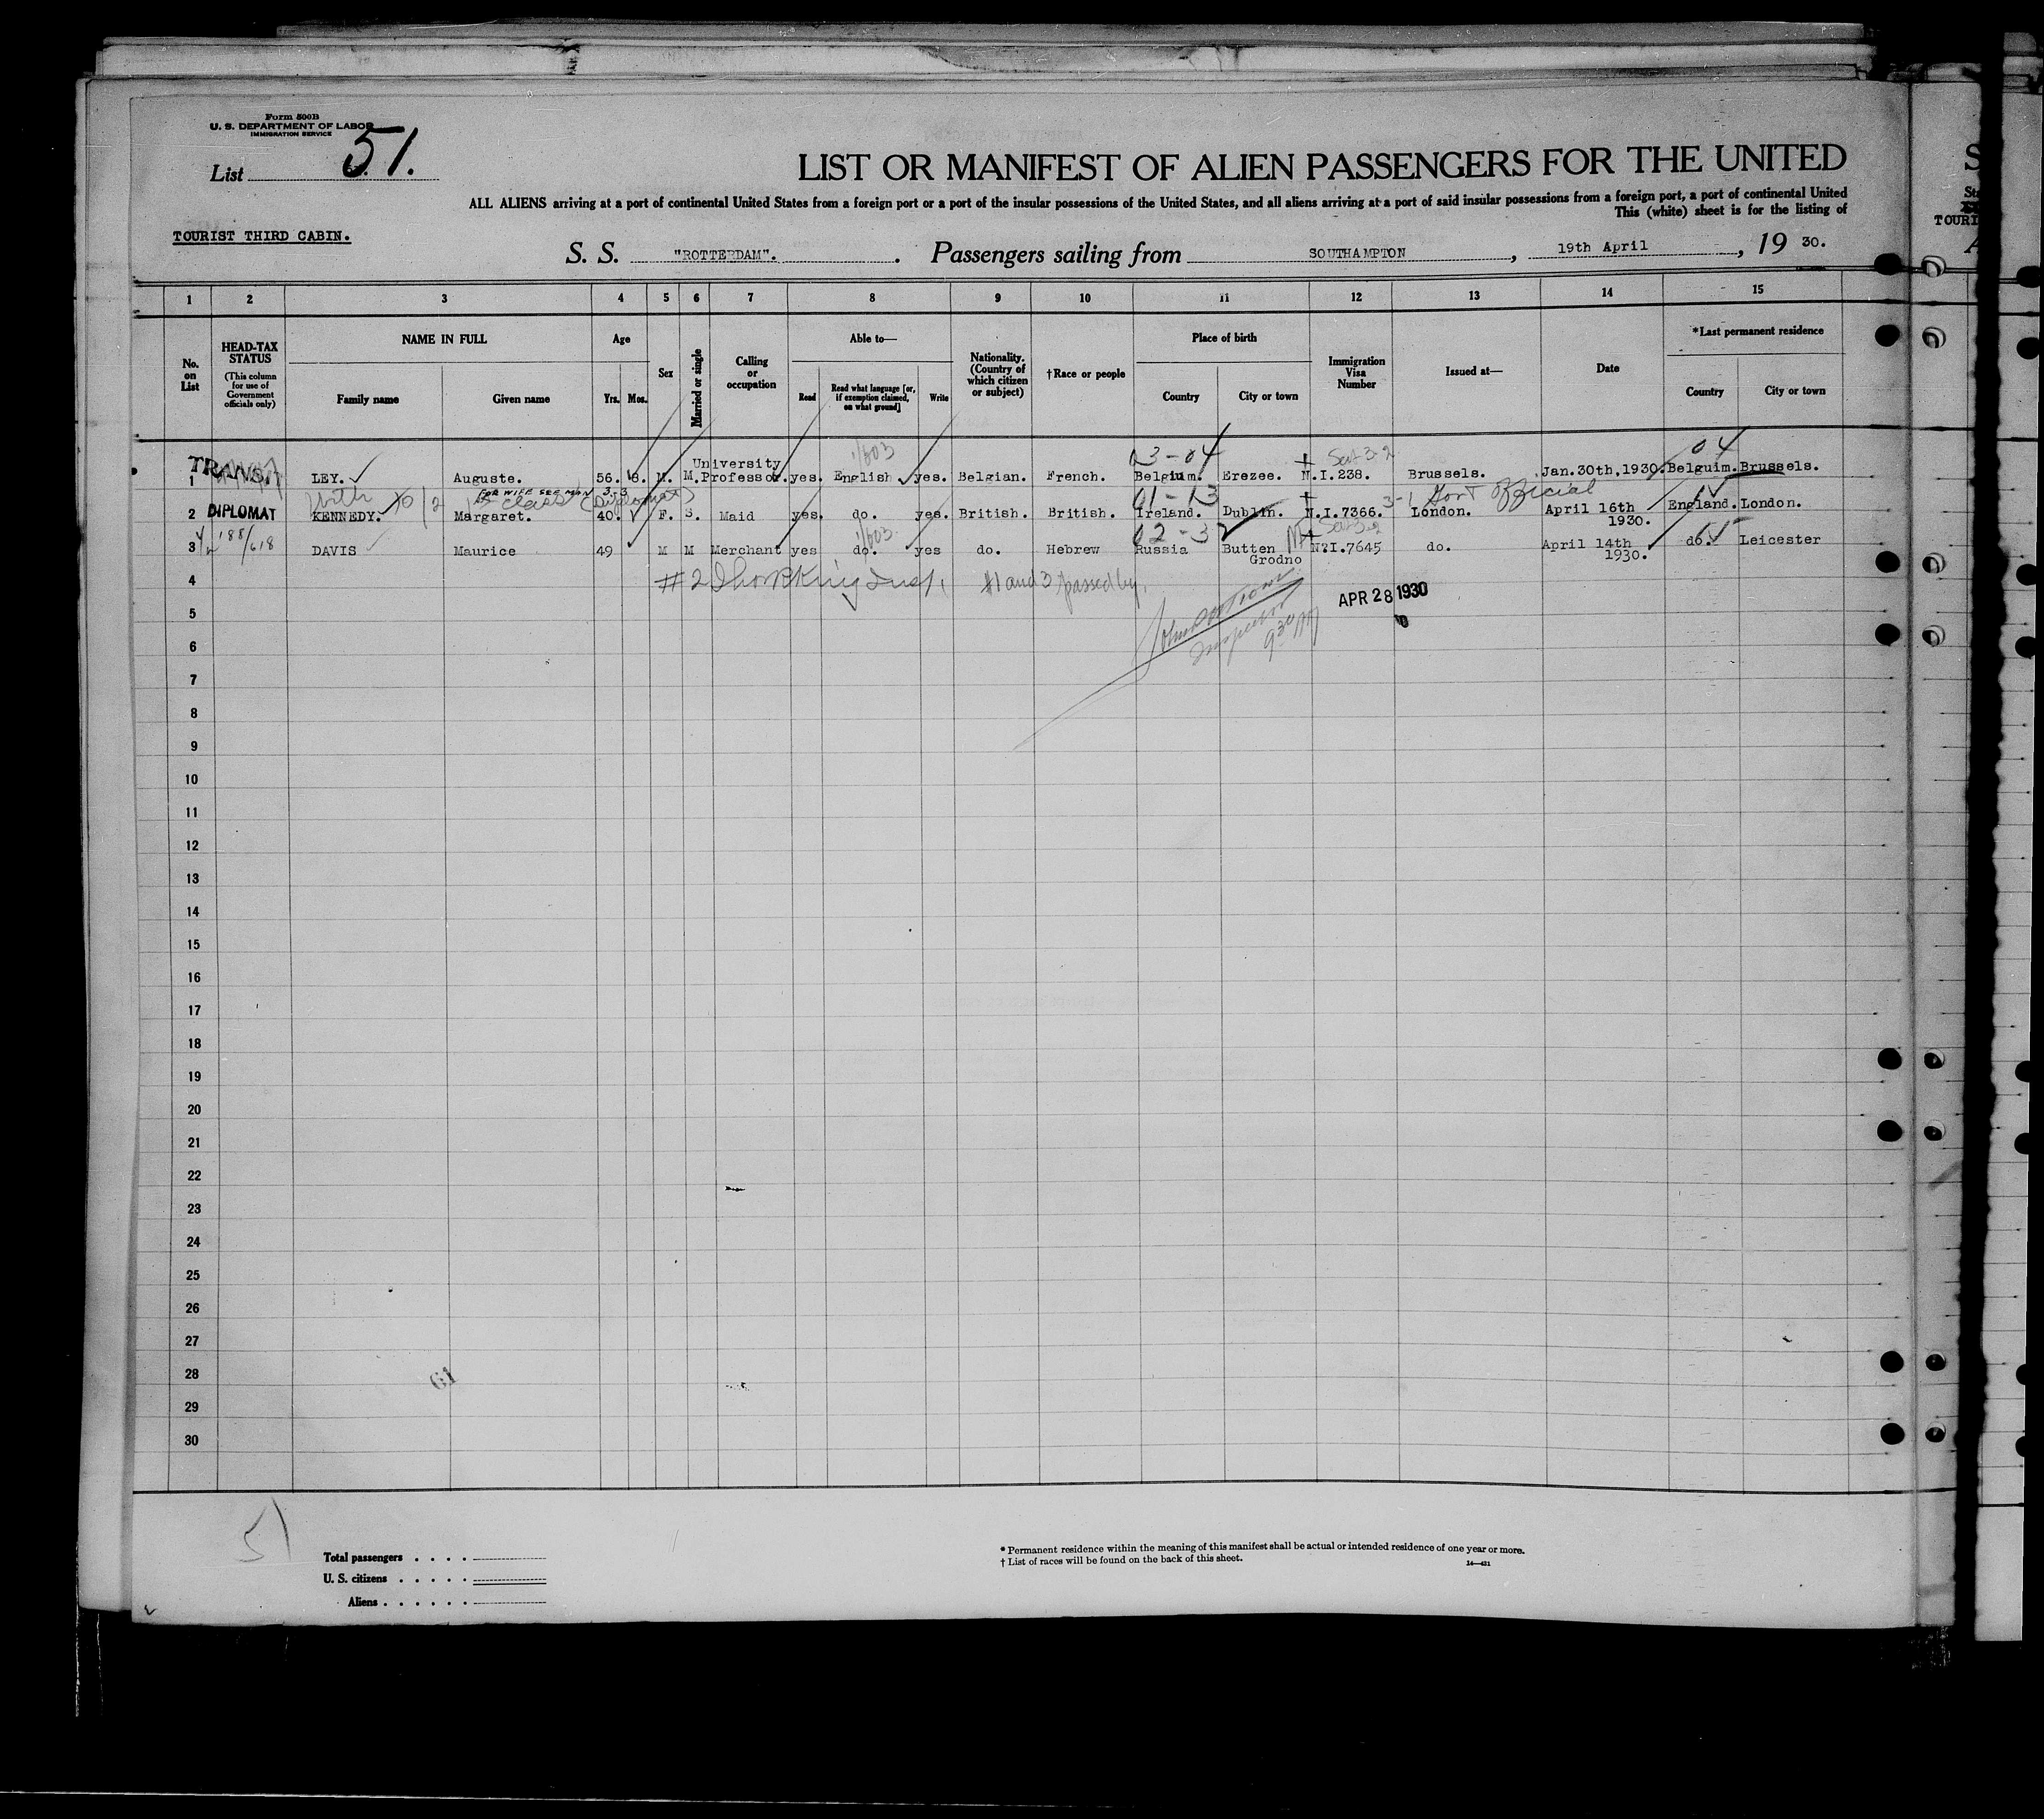 Form 500B
U. S. DEPARTMENT OF LABOR
IMMIGRATION SERVICE
List 51.
LIST OR MANIFEST OF ALIEN PASSENGERS FOR THE UNITED
ALL ALIENS arriving at a port of continental United States from a foreign port or a port of the insular possessions of the United States, and all aliens arriving at a port of said insular possessions from a foreign port, a port of continental United
This (white) sheet is for the listing of
TOURIST THIRD CABIN.
S. S. "ROTTERDAM". Passengers sailing from SOUTHAMPTON, 19th April, 19 30.
1 2 3 4 5 6 7 8 9 10 11 12 13 14 15
No. on List
HEAD-TAX STATUS (This column for use of Government officials only)
NAME IN FULL
Family name Given name
Age
Yrs. Mos.
Sex
Married or single
Calling or occupation
Able to—
Read
Read what language [or, if exemption claimed, on what ground]
Write
Nationality. (Country of which citizen or subject)
†Race or people
Place of birth
Country City or town
Immigration Visa Number
Issued at—
Date
*Last permanent residence
Country City or town
03-04 04
1 TRANS. LEY. Auguste. 56. 8. M. M. University Professor. yes. English yes. Belgian. French. Belgium. Erezee. N.I.238. Brussels. Jan.30th,1930. Belguim. Brussels.
With 10/2 FOR WIFE SEE MAN 3-3 1st class (Diplomat) 01-13 3-1 Gov't Official
2 DIPLOMAT KENNEDY. Margaret. 40. F. S. Maid yes. do. yes. British. British. Ireland. Dublin. N.I.7366. London. April 16th 1930. England. London.
188/618 1/603 02-32
3 DAVIS Maurice 49 M M Merchant yes do. yes do. Hebrew Russia Butten Grodno N?I.7645 do. April 14th 1930. do. Leicester
4 #1 and 3 passed by
APR 28 1930
5
6 Inspector
9 30
7
8
9
10
11
12
13
14
15
16
17
18
19
20
21
22
23
24
25
26
27
28
61
29
30
51
Total passengers . . . .
U. S. citizens . . . . .
Aliens . . . . . .
* Permanent residence within the meaning of this manifest shall be actual or intended residence of one year or more.
† List of races will be found on the back of this sheet.
14—431
S
TOURI